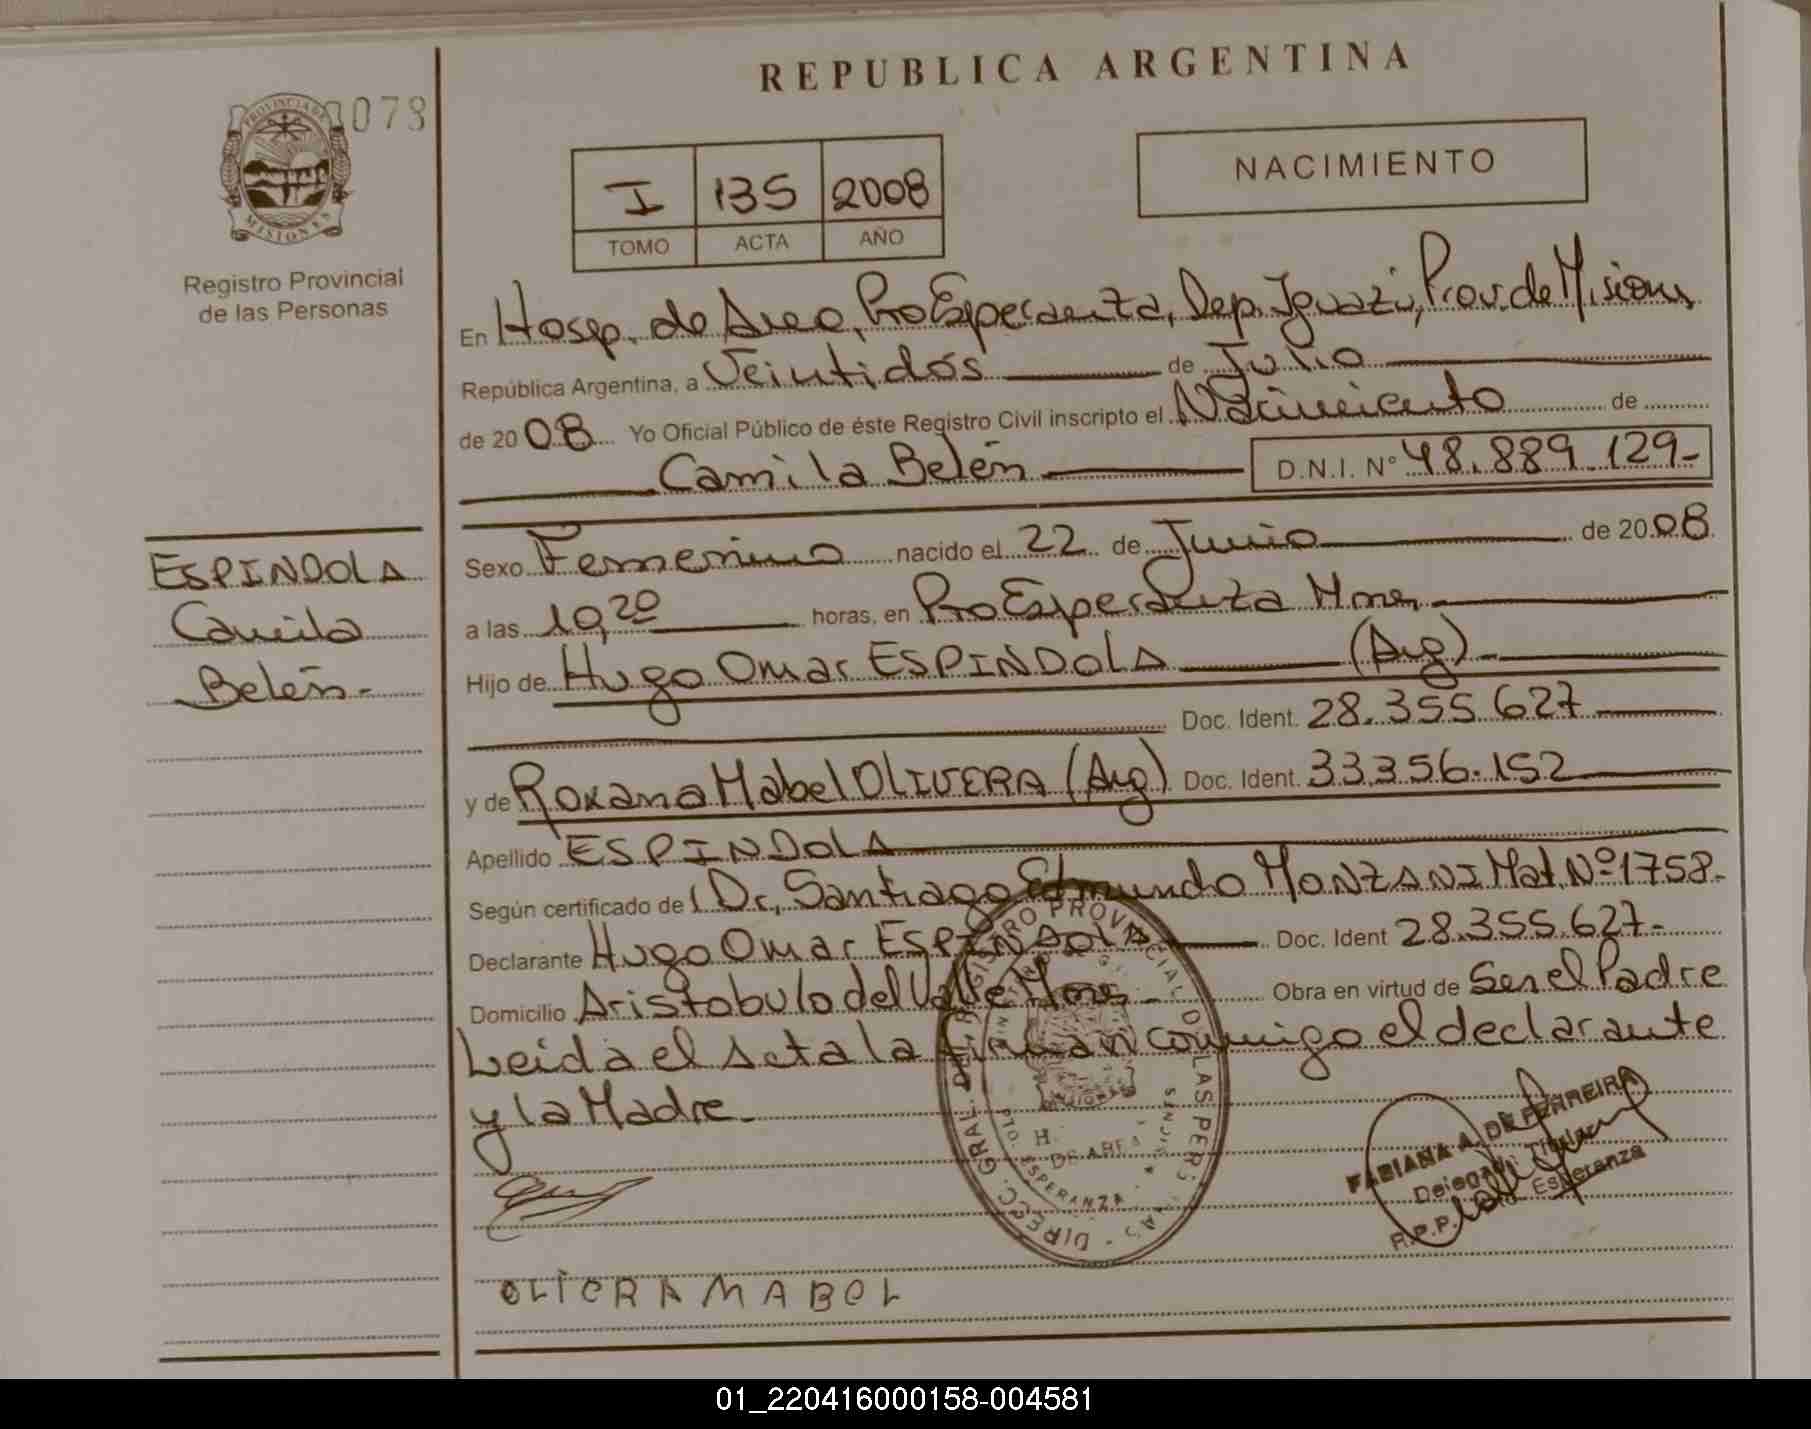 REPUBLICA ARGENTINA
PROVINCIA DE
MISIONES
073
Registro Provincial
de las Personas
I 135 2008
TOMO ACTA AÑO
NACIMIENTO
En Hosp. de Area, Pto Esperanza, Dep. Iguazú, Prov. de Misiones
República Argentina, a Veintidós de Julio
de 2008 Yo Oficial Público de éste Registro Civil inscripto el Nacimiento de
Camila Belén D.N.I. N° 48.889.129-
ESPINDOLA
Camila
Belén-
Sexo Femenino nacido el 22 de Junio de 2008
a las 19,20 horas, en Pto Esperanza Mnes,
Hijo de Hugo Omar ESPINDOLA (Arg)
Doc. Ident. 28.355.627
y de Roxana Mabel OLIVERA (Arg) Doc. Ident. 33.356.152
Apellido ESPINDOLA
Según certificado de l Dr. Santiago Edmundo MONZANI Mat. Nº 1758-
Declarante Hugo Omar ESPINDOLA Doc. Ident 28.355.627-
Domicilio Aristobulo del Valle Mnes Obra en virtud de Ser el Padre
Leida el Acta la firman conmigo el declarante
y la Madre
DIRECC. GRAL. DEL REGISTRO PROVINCIAL DE LAS PERSONAS
H. DE AREA
PTO. ESPERANZA
FABIANA A. DE FERREIRA
Delegada Titular
R.P.P. Pto Esperanza
OLIERA MABEL
01_220416000158-004581